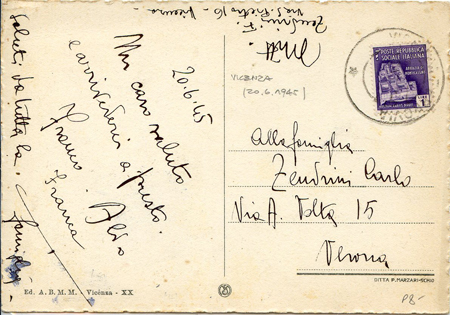 Zendrini F.
Via S. Pietro 16 - Vicenza
20.6.45
Un caro saluto
e arrivederci a presto.
Franco. Aldo
Franca
Saluti da tutta la
famiglia
VICENZA
(20.6.1945)
POSTE REPUBBLICA
SOCIALE ITALIANA
LIRE 1
Alla famiglia
Zendrini Carlo
Via A. Volta 15
Verona
Ed. A. B. M. M. - Vicenza - XX
DITTA P. MARZARI-SCHIO
P8-